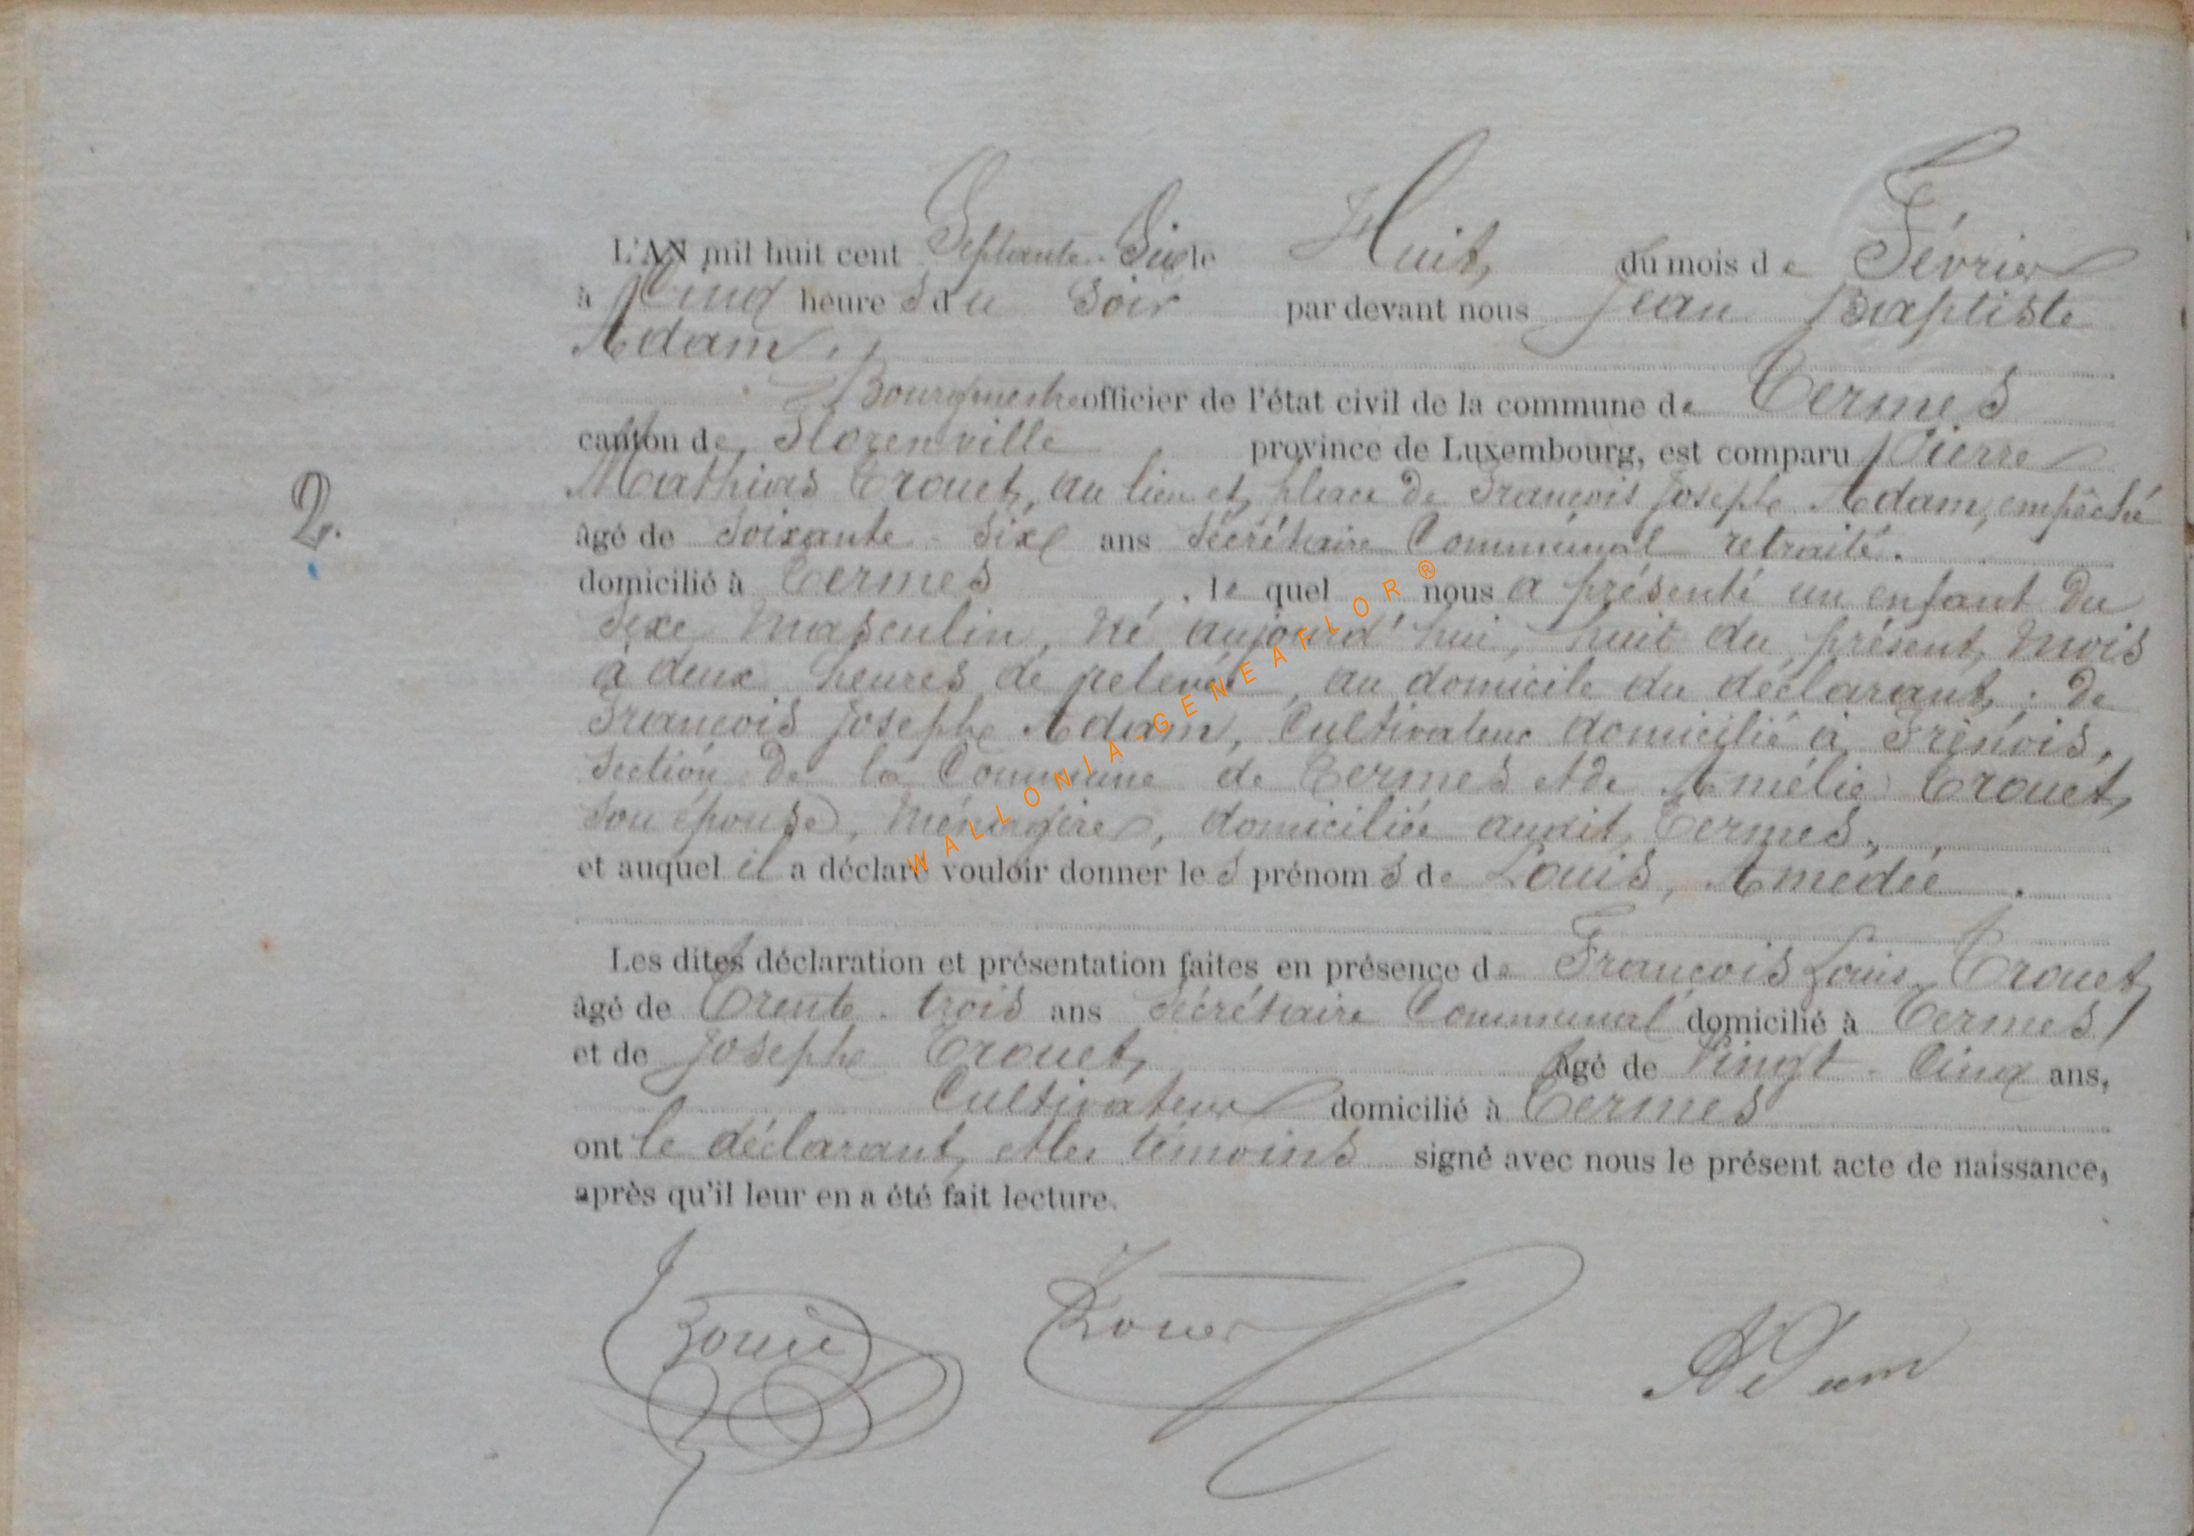 L'AN mil huit cent Septante-Six le Huit du mois de Février
à Cinq heures du Soir par devant nous Jean Baptiste
Adam,
Bourgmestre officier de l'état civil de la commune de Termes
canton de Florenville province de Luxembourg, est comparu Pierre
Mathias Trouet, au lieu et place de François Joseph Adam, empêché
2.
âgé de Soixante-Six ans Sécrétaire Communal retraité.
domicilié à Termes, le quel nous a présenté un enfant du
Sexe Masculin, né aujourd'hui, huit du présent mois
à deux heures de relevée, au domicile du déclarant; de
François Joseph Adam, Cultivateur domicilié à Frénois,
Section de la Commune de Termes et de Amélie Trouet,
son épouse, Ménagère, domiciliée audit Termes,
et auquel il a déclaré vouloir donner les prénoms de Louis, Amedée.
Les dites déclaration et présentation faites en présence de François Louis Trouet
âgé de Trente-trois ans Sécrétaire Communal domicilié à Termes
et de Joseph Trouet, âgé de Vingt-Cinq ans,
Cultivateur domicilié à Termes
ont le déclarant et les témoins signé avec nous le présent acte de naissance,
après qu'il leur en a été fait lecture.
Adam
WALLONIA-GENEAFLOR®